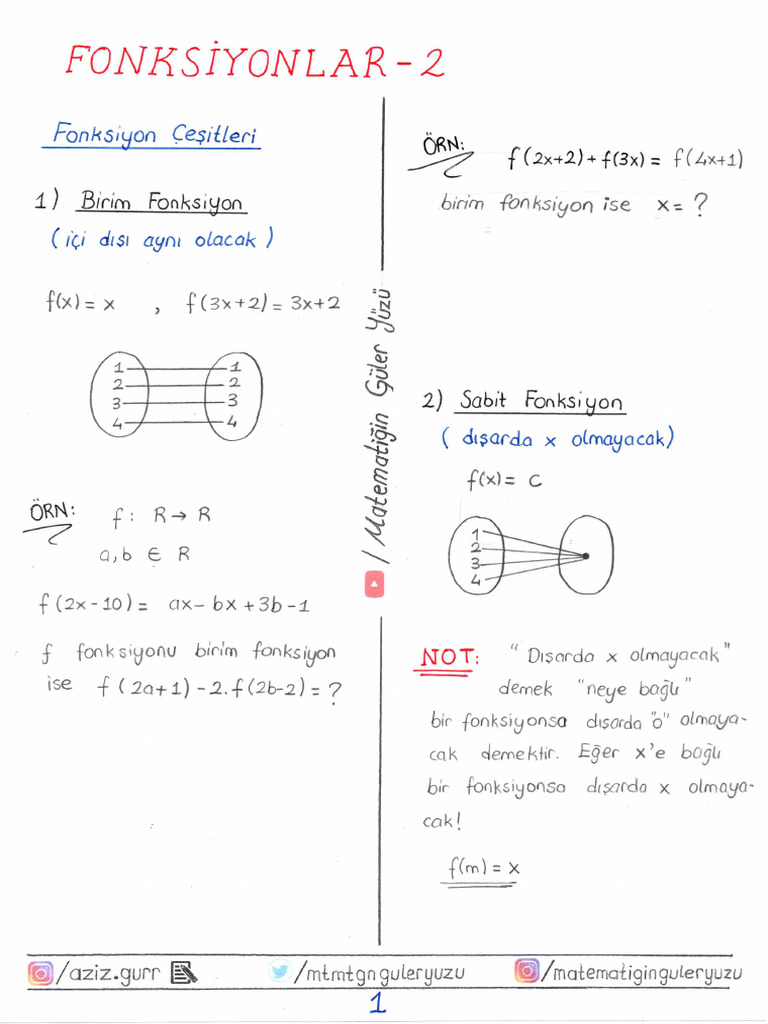 FONKSİYONLAR-2
Fonksiyon Çeşitleri
1) Birim Fonksiyon
(içi dışı aynı olacak)
f(x) = x , f(3x+2) = 3x+2
1 1
2 2
3 3
4 4
ÖRN: f: R → R
a,b ∈ R
f(2x-10) = ax-bx+3b-1
f fonksiyonu birim fonksiyon
ise f(2a+1)-2.f(2b-2) = ?
/Matematiğin Güler Yüzü
ÖRN: f(2x+2)+f(3x) = f(4x+1)
birim fonksiyon ise x = ?
2) Sabit Fonksiyon
(dışarda x olmayacak)
f(x) = c
1
2
3
4
NOT: "Dışarda x olmayacak"
demek "neye bağlı"
bir fonksiyonsa dışarda "o" olmaya-
cak demektir. Eğer x'e bağlı
bir fonksiyonsa dışarda x olmaya-
cak!
f(m) = x
/aziz.gurr /mtmtgnguleryuzu /matematiginguleryuzu
1